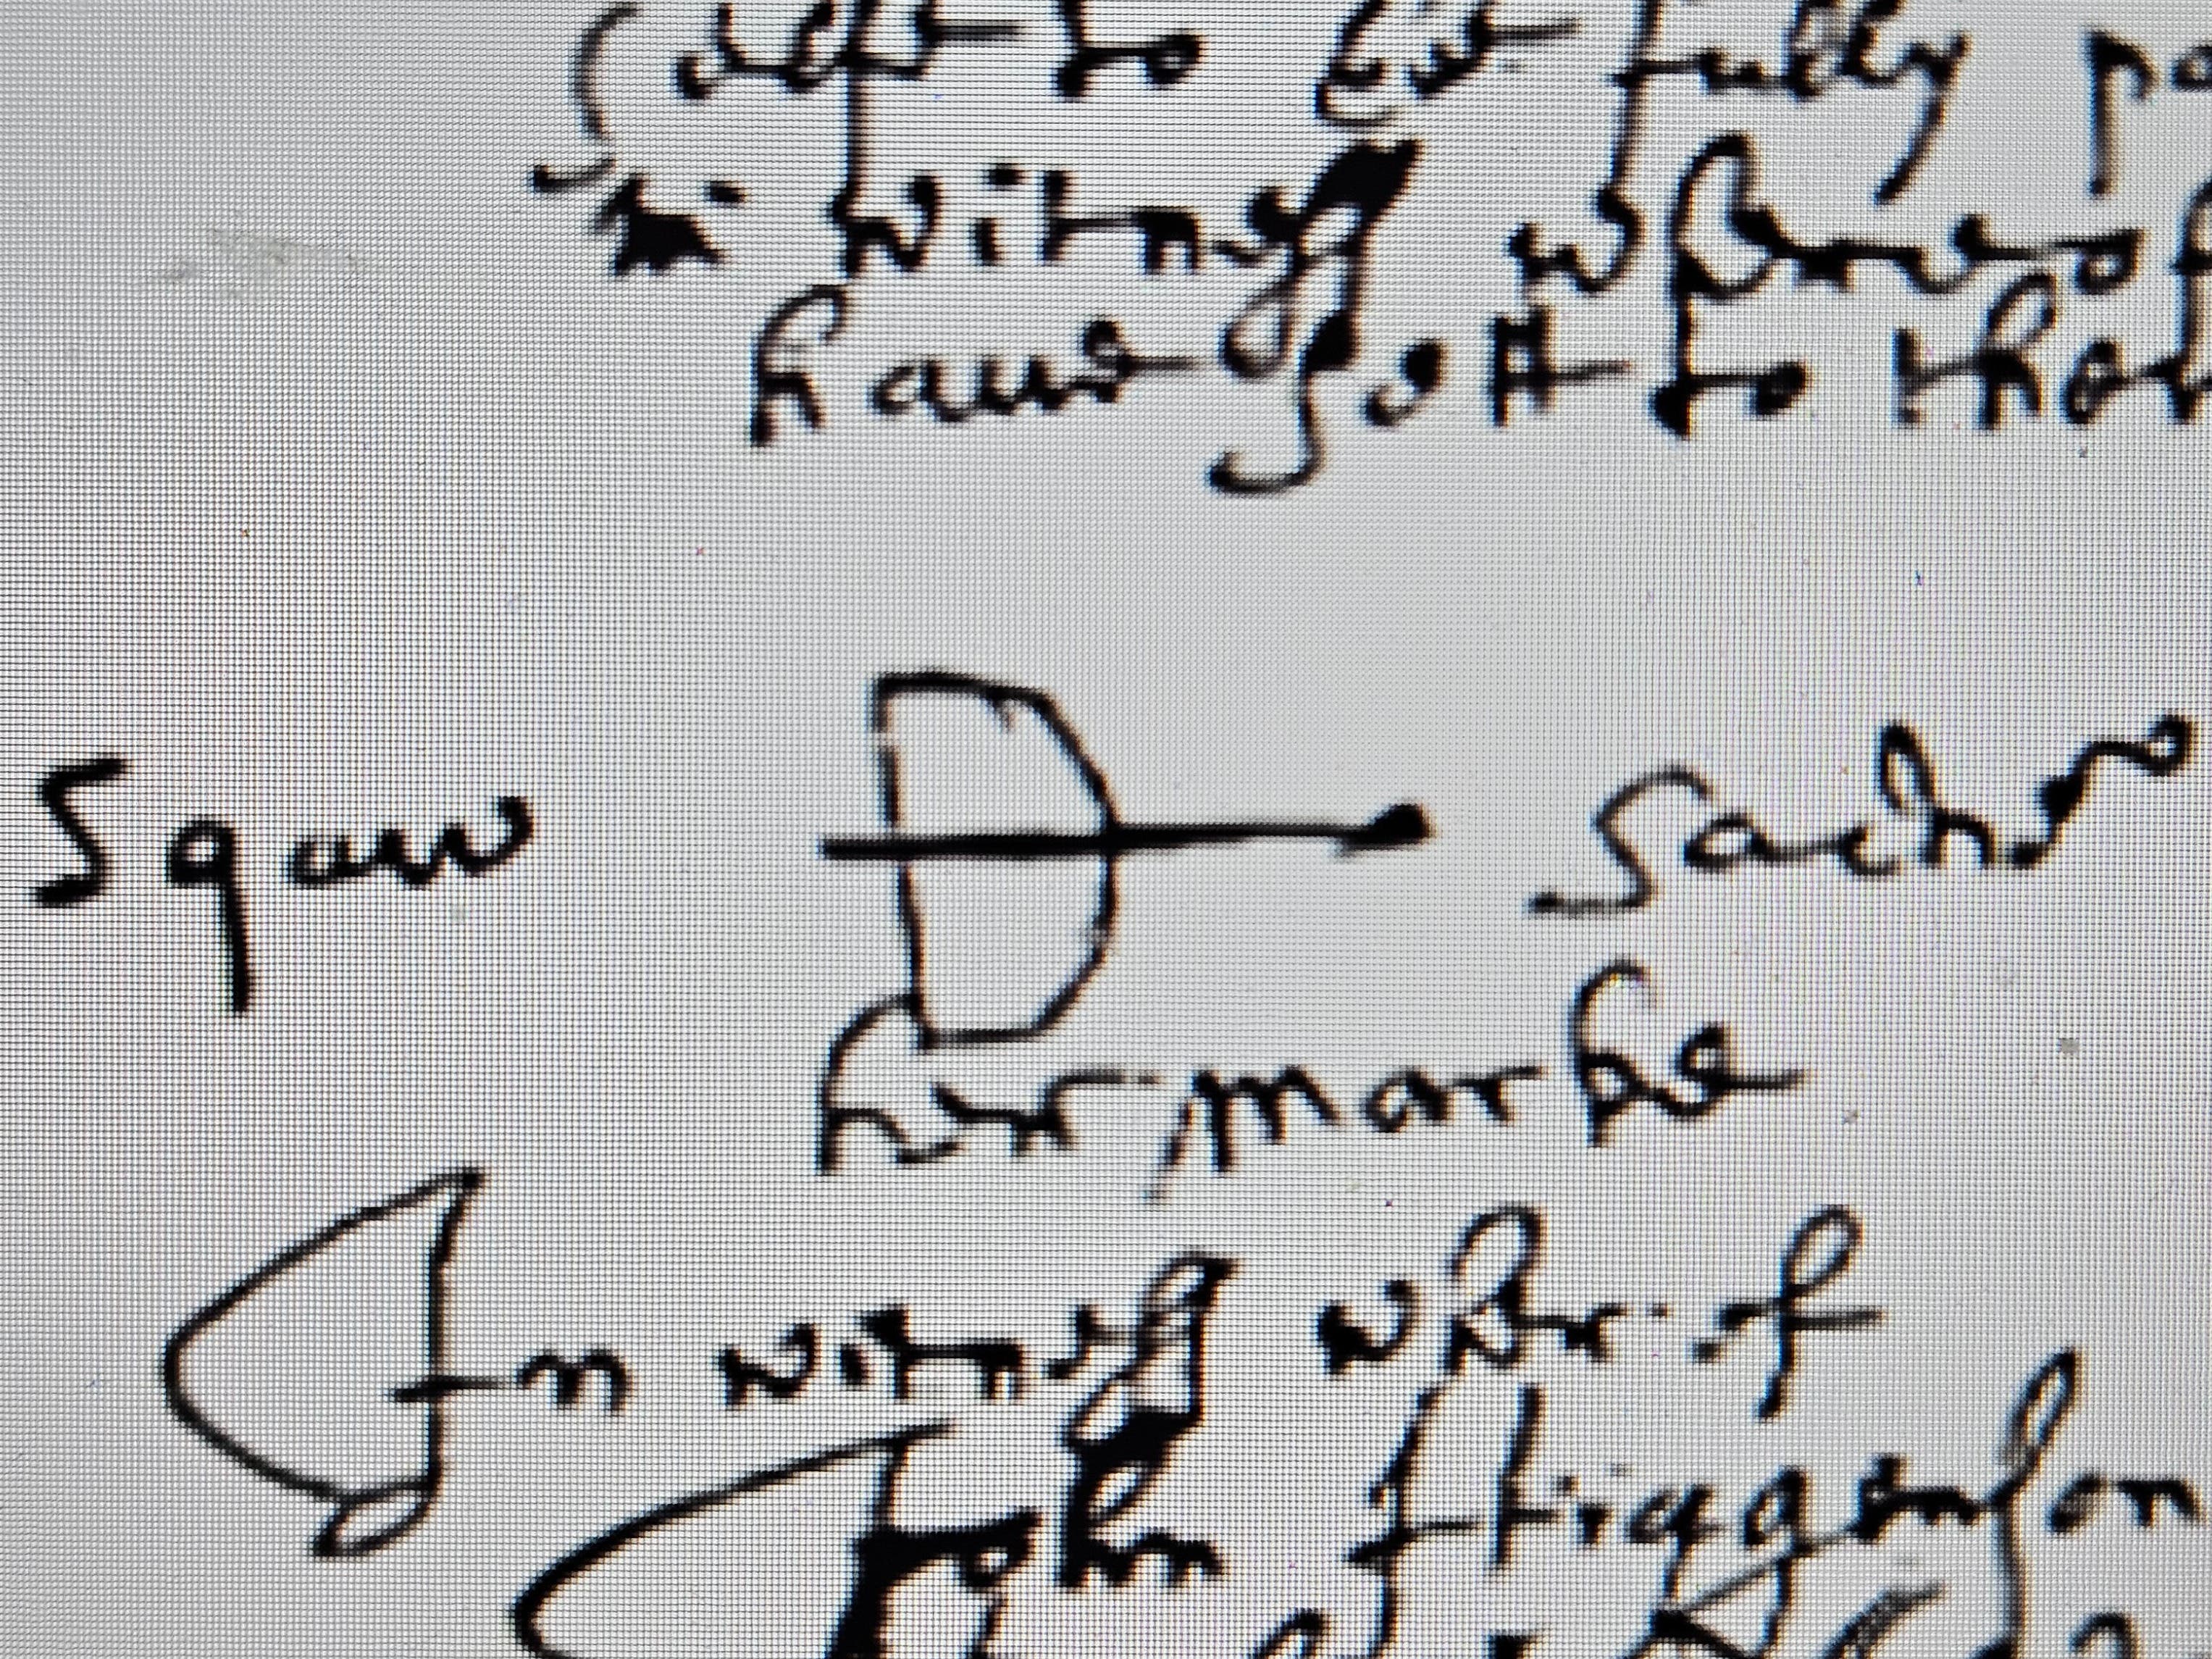 selfe to be fully pa
in witness whereof
haue sett to thes
Squaw Sachem
her marke
In witness wher of
John ffrigginson